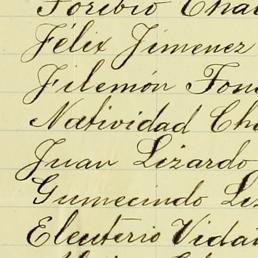 Toribio Cha
Félix Jimenez
Filemón Fon
Natividad Ch
Juan Lizardo
Gumecindo Li
Eleuterio Vida